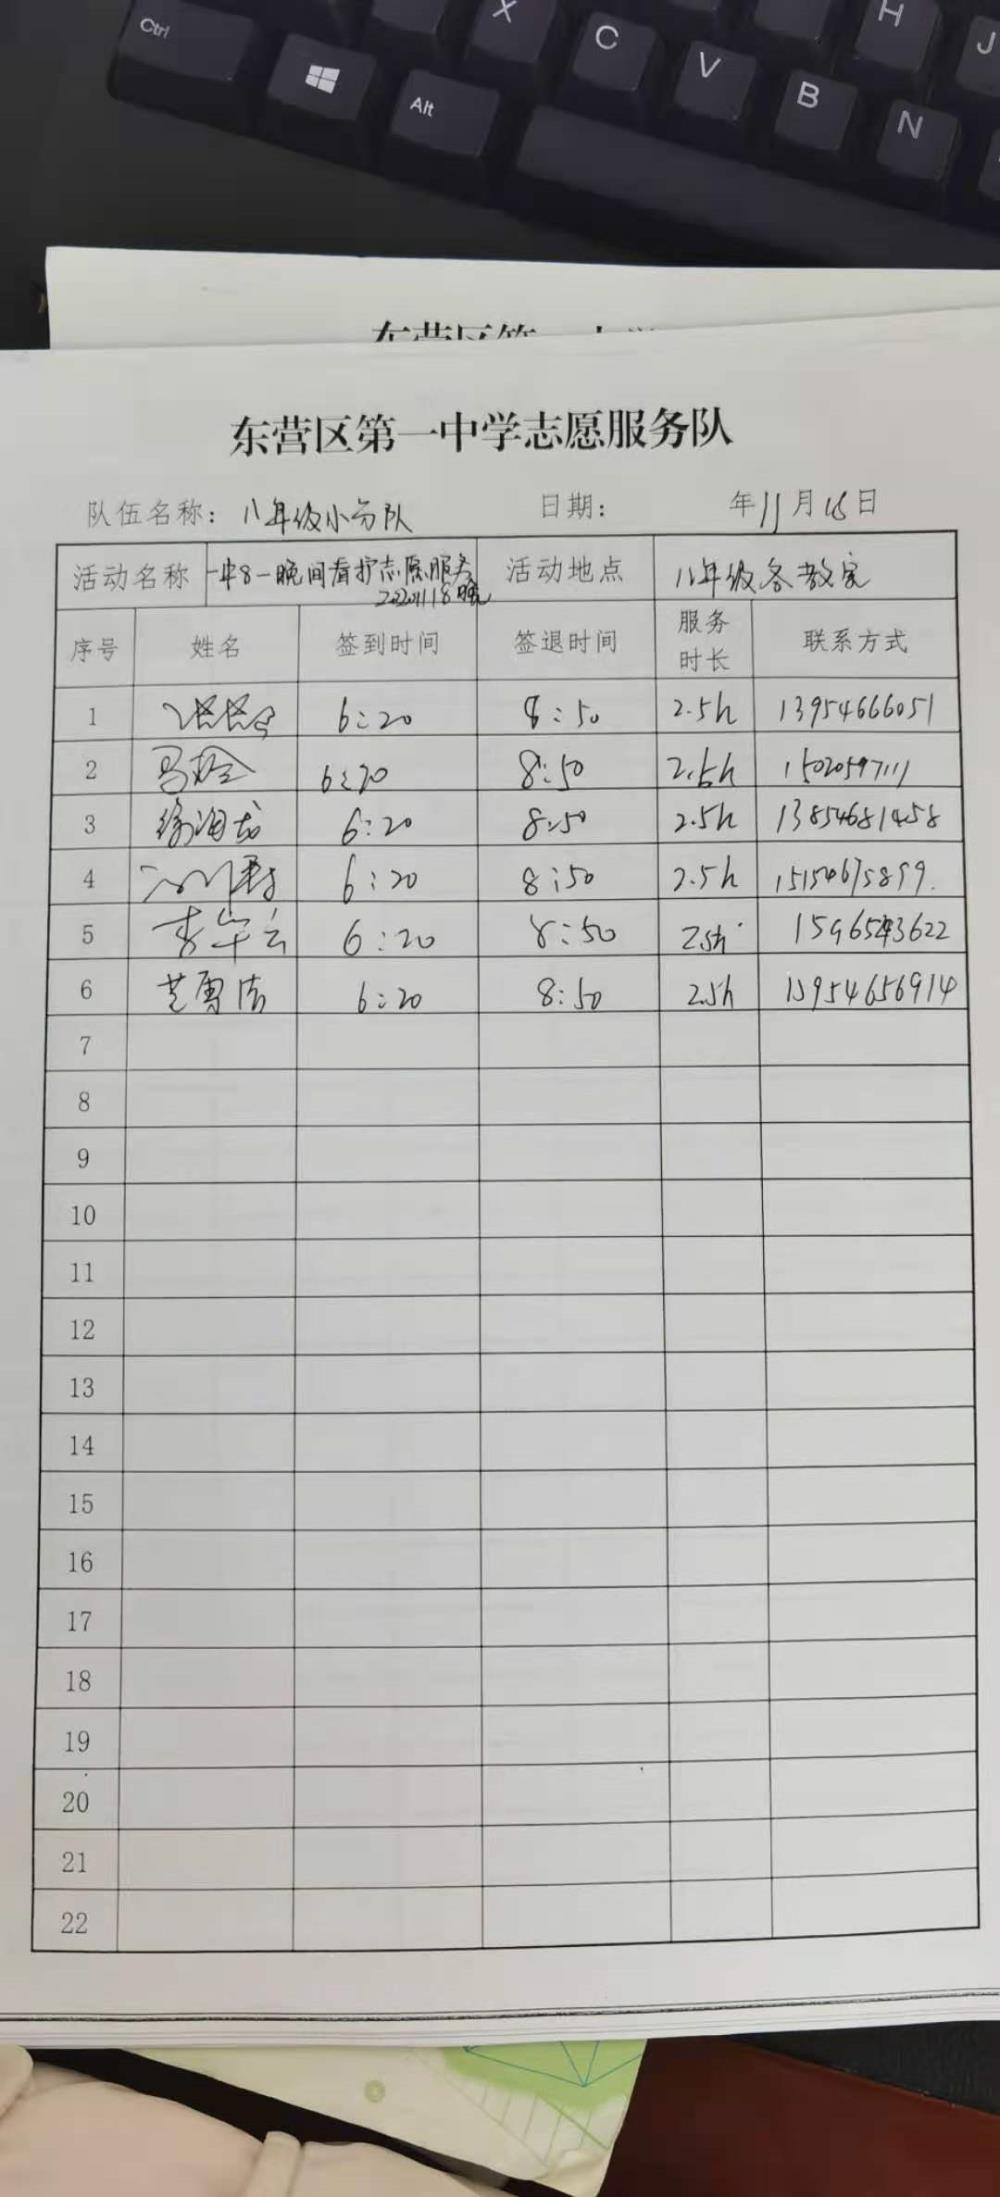 Ctrl
Alt
X
C
V
B
N
H
J
东营区第一中学志愿服务队
队伍名称：八年级小分队 日期： 年11月18日
活动名称 一中8一晚间看护志愿服务 20201118晚 活动地点 八年级各教室
序号 姓名 签到时间 签退时间 服务时长 联系方式
1 6:20 8:50 2.5h 13954666051
2 6:20 8:50 2.5h 15020597111
3 徐海龙 6:20 8:50 2.5h 13854681458
4 6:20 8:50 2.5h 15154675899
5 李军云 6:20 8:50 2.5h
6 6:20 8:50 2.5h 13954656914
7
8
9
10
11
12
13
14
15
16
17
18
19
20
21
22